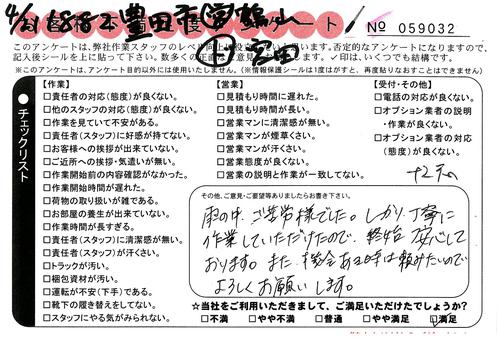 No 059032
このアンケートは、弊社作業スタッフのレベル向上に役立て
います。否定的なアンケートになりますので、
記入後シールを上に貼って下さい。
✓印は、いくつでも結構です。
※このアンケートは、アンケート目的以外には使用いたしません。(※情報保護シールは1度はがすと、再度貼りなおすことはできません)
チェックリスト
【作業】
□責任者の対応(態度)が良くない。
□他のスタッフの対応(態度)が良くない。
□作業を見ていて不安がある。
□責任者(スタッフ)に好感が持てない。
□お客様への挨拶が出来ていない。
□ご近所への挨拶・気遣いが無い。
□作業開始前の内容確認がなかった。
□作業開始時間が遅れた。
□荷物の取り扱いが雑である。
□お部屋の養生が出来ていない。
□作業時間が長すぎる。
□責任者(スタッフ)に清潔感が無い。
□責任者(スタッフ)が汗くさい。
□トラックが汚い。
□梱包資材が汚い。
□運転が不安(下手)である。
□靴下の履き替えをしてない。
□スタッフにやる気がみられない。
【営業】
□見積もり時間に遅れた。
□見積もり時間が長い。
□営業マンに清潔感が無い。
□営業マンが煙草くさい。
□営業マンが汗くさい。
□営業態度が良くない。
□営業の説明と作業が一致してない。
【受付・その他】
□電話の対応が良くない。
□オプション業者の説明
・作業が良くない。
□オプション業者の対応
(態度)が良くない。
その他、ご意見・ご要望等ありましたらお書き下さい。
雨の中、ご苦労様でした。しっかり、丁寧に
作業していただけたので、終始安心して
おります。また、機会ある時は頼みたいので
よろしくお願いします。
☆当社をご利用いただきまして、ご満足いただけたでしょうか?
□不満 □やや不満 □普通 □やや満足 ☑満足